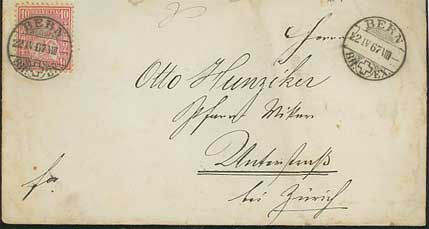 10 10
BERN
22 IV 67 VIII
BR. EX.
BERN
22 IV 67 VIII
BR. EX.
Herrn
Otto Hunziker
Pfarr Vikar
Unterstraß
bei Zürich
fr.